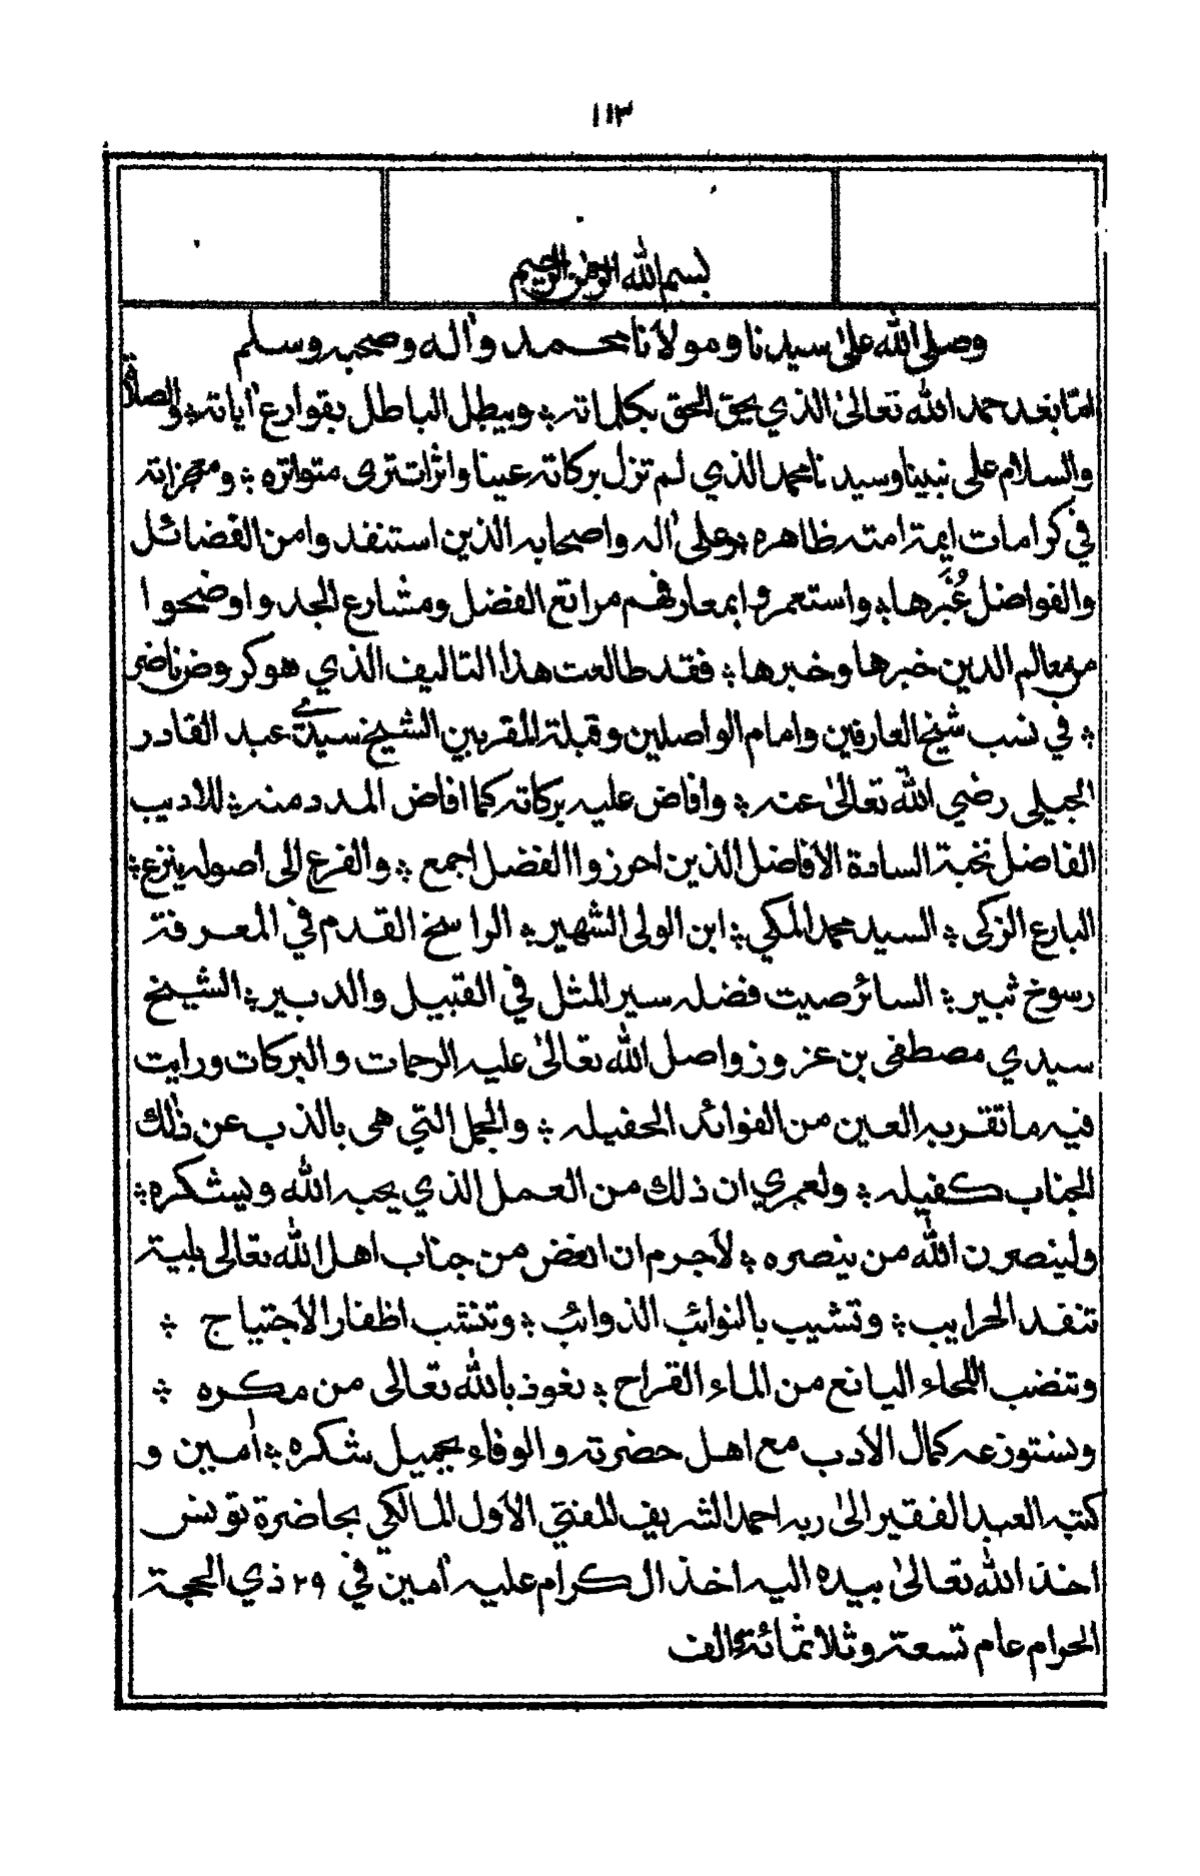 ١١٣
بسم الله الرحمن الرحيم
وصلى الله على سيدنا ومولانا محمد وآله وصحبه وسلم
امّا بعد حمد الله تعالى الذي يحق الحق بكلماته ؛ ويبطل الباطل بقوارع آياته ؛ والصلاة
والسلام على نبينا وسيدنا محمد الذي لم تزل بركاته عينا واثرات ترى متواتره ؛ ومعجزاته
في كرامات ايمة امته ظاهره ؛ وعلى آله واصحابه الذين استنفدوا من الفضائل
والفواضل غُبَّرها ؛ واستعمروا بمعارفهم مراتع الفضل ومشارع المجد واوضحوا
من معالم الدين خبرها وخبرها ؛ فقد طالعت هذا التاليف الذي هو كروض ناضر
؛ في نسب شيخ العارفين وامام الواصلين وقبلة المقربين الشيخ سيدي عبد القادر
الجيلى رضي الله تعالى عنه ؛ وافاض عليه بركاته كما افاض المدد منه ؛ للاديب
الفاضل نخبة السادة الافاضل الذين احرزوا الفضل اجمع ؛ والفرع الى اصوله ينزع ؛
البارع الزكى ؛ السيد محمد المكي ؛ ابن الولى الشهير ؛ الراسخ القدم في المعرفة
رسوخ ثبير ؛ السائر صيت فضله سير المثل في القبيل والدبير ؛ الشيخ
سيدي مصطفى بن عزوز واصل الله تعالى عليه الرحمات والبركات ورايت
فيه ما تقر به العين من الفوائد الحفيله ؛ والجمل التي هى بالذب عن ذلك
الجناب كفيله ؛ ولعمري ان ذلك من العمل الذي يحبه الله ويشكره ؛
ولينصرن الله من ينصره ؛ لاجرم ان الغض من جناب اهل الله تعالى بلية
تنقد الحرايب ؛ وتشيب بالنوائب الذوائب ؛ وتنشب اظفار الاجتياح ؛
وتنضب اللحاء اليانع من الماء القراح ؛ نعوذ بالله تعالى من مكره ؛
ونستوزعه كمال الادب مع اهل حضرته والوفاء بجميل شكره ؛ آمين و
كتبه العبد الفقير الى ربه احمد الشريف المفتي الاول المالكي بحاضرة تونس
اخذ الله تعالى بيده اليه اخذ ال كرام عليه آمين في ٢٩ ذي الحجة
الحرام عام تسعة وثلاثمائة والف